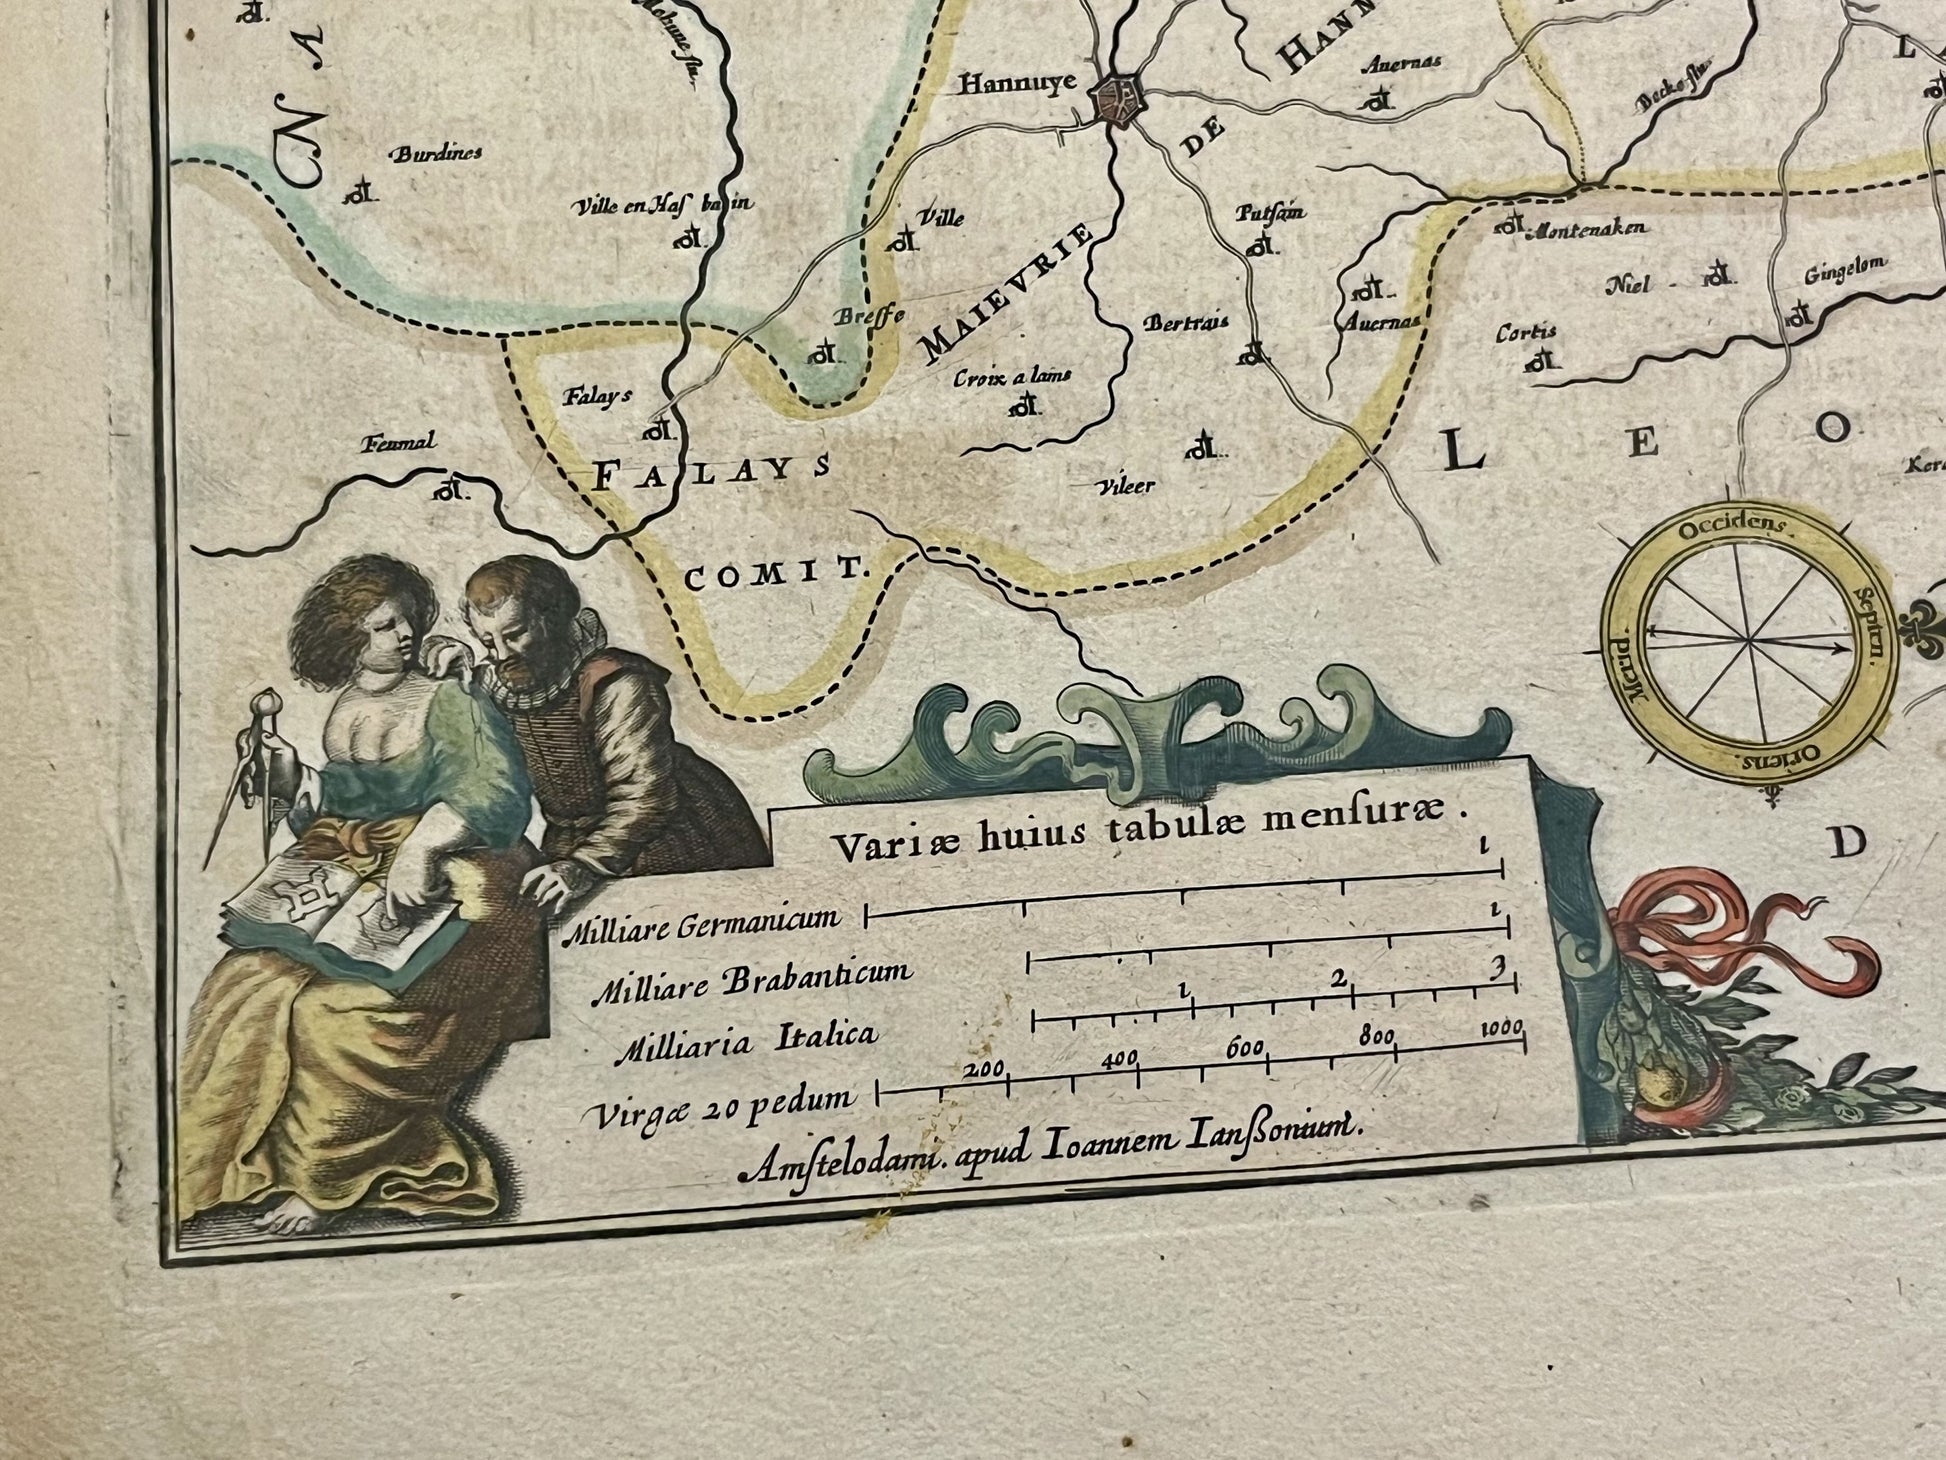 NA
Mehune flu.
Hannuye
HANN
DE
MAIEVRIE
Auernas
Becke flu.
LA
Burdines
Ville en Haſ bain
Ville
Putſain
Montenaken
Niel
Gingelom
Breſſe
Bertrais
Auernas
Cortis
Falays
Croix a lams
Feumal
FALAYS
Vileer
LEO
COMIT.
Occidens.
Septen.
Merid.
Oriens.
D
Variæ huius tabulæ menſuræ.
1
Milliare Germanicum
1
Milliare Brabanticum
1 2 3
Milliaria Italica
200 400 600 800 1000
Virgæ 20 pedum
Amſtelodami. apud Ioannem Ianßonium.